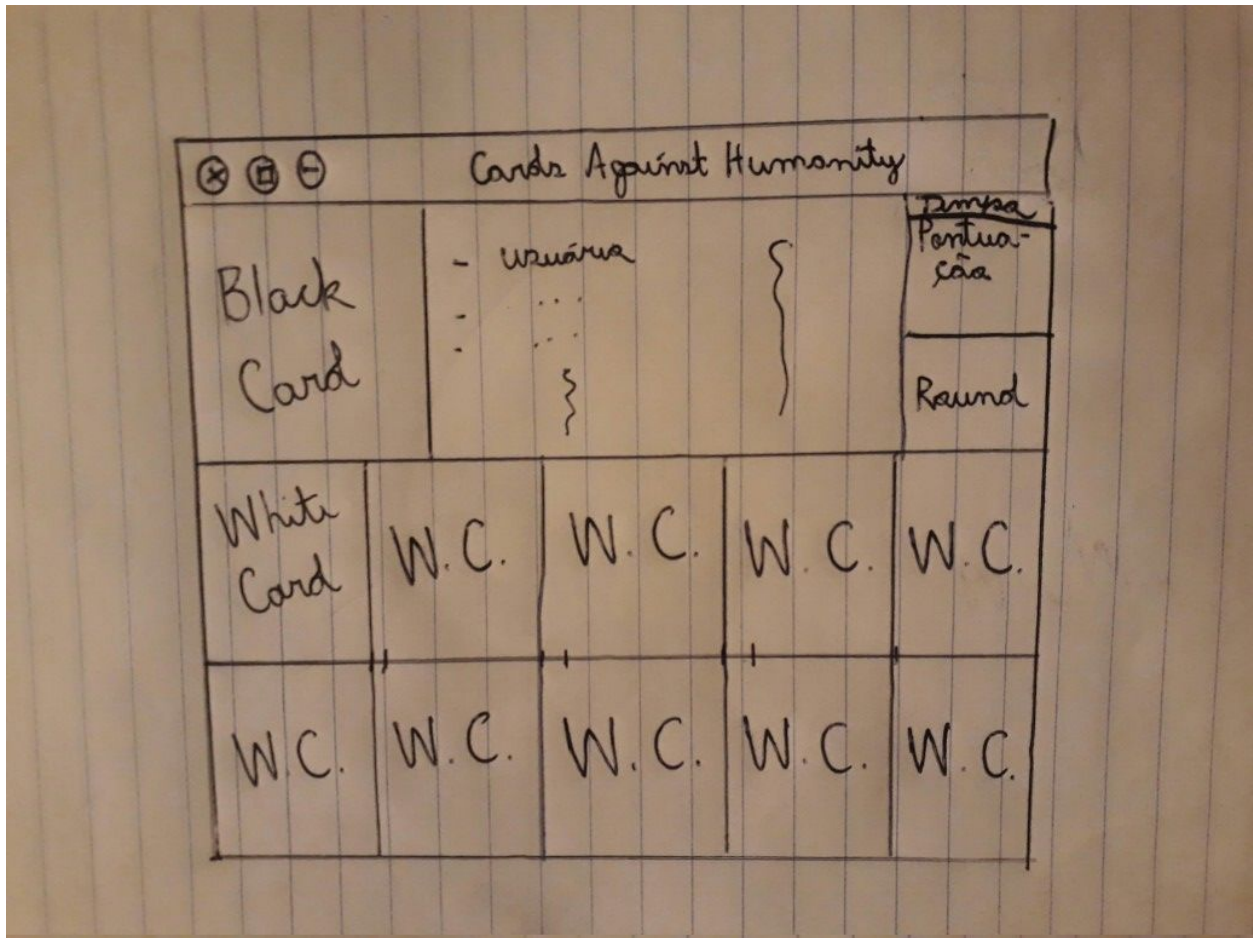 Cards Against Humanity
Black
Card
- usuário
- ...
- ...
Tempo
Pontua-
ção
Round
White
Card
W.C.
W.C.
W.C.
W.C.
W.C.
W.C.
W.C.
W.C.
W.C.